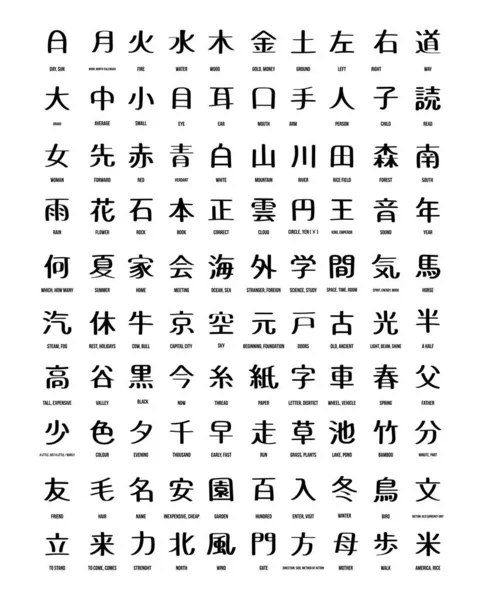 日 月 火 水 木 金 土 左 右 道
DAY, SUN FIRE WATER WOOD GOLD, MONEY GROUND LEFT RIGHT WAY
大 中 小 目 耳 口 手 人 子 読
AVERAGE SMALL EYE EAR MOUTH ARM PERSON CHILD READ
女 先 赤 青 白 山 川 田 森 南
WOMAN FORWARD RED WHITE MOUNTAIN RIVER RICE FIELD FOREST SOUTH
雨 花 石 本 正 雲 円 王 音 年
RAIN FLOWER ROCK BOOK CORRECT CLOUD CIRCLE, YEN (¥) KING, EMPEROR SOUND YEAR
何 夏 家 会 海 外 学 間 気 馬
WHICH, HOW MANY SUMMER HOME MEETING OCEAN, SEA STRANGER, FOREIGN SCIENCE, STUDY SPACE, TIME, ROOM HORSE
汽 休 牛 京 空 元 戸 古 光 半
STEAM, FOG REST, HOLIDAYS COW, BULL CAPITAL CITY SKY BEGINNING, FOUNDATION DOORS OLD, ANCIENT LIGHT, BEAM, SHINE A HALF
高 谷 黒 今 糸 紙 字 車 春 父
TALL, EXPENSIVE VALLEY BLACK NOW THREAD PAPER LETTER, DISRTICT WHEEL, VEHICLE SPRING FATHER
少 色 夕 千 早 走 草 池 竹 分
COLOUR EVENING THOUSAND EARLY, FAST RUN GRASS, PLANTS LAKE, POND BAMBOO MINUTE, PART
友 毛 名 安 園 百 入 冬 鳥 文
FRIEND HAIR NAME INEXPENSIVE, CHEAP GARDEN HUNDRED ENTER, VISIT WINTER BIRD
立 来 力 北 風 門 方 母 歩 米
TO STAND TO COME, COMES STRENGHT NORTH WIND GATE MOTHER WALK AMERICA, RICE